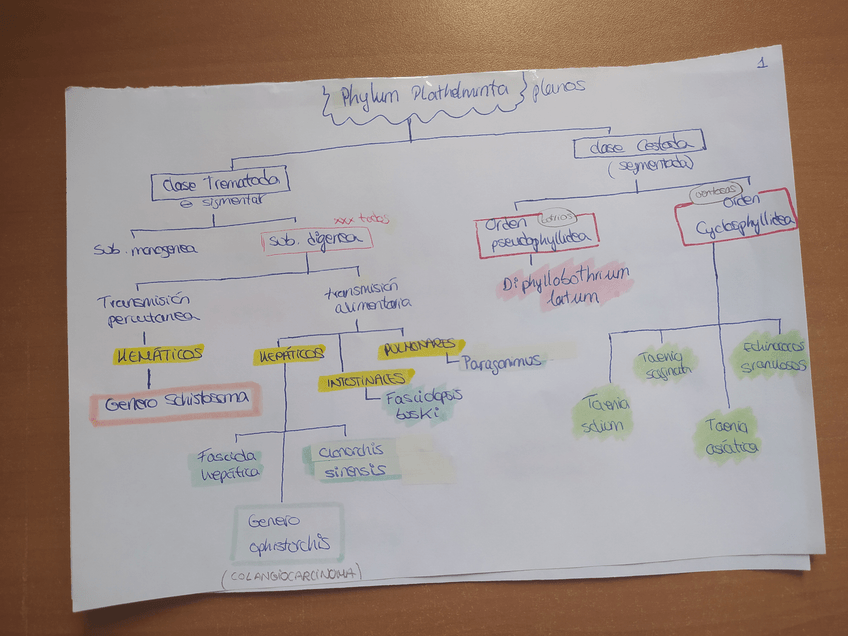 1
Phylum Plathelminta planos
Clase Trematoda
Clase Cestoda
(segmentada)
Sub. monogenea
xxx todos
Sub. digenea
Orden botrios
pseudophyllidea
ventosas
Orden
Cyclophyllidea
Diphyllobothrium
latum
Transmisión
percutanea
transmisión
alimentaria
HEMÁTICOS
HEPÁTICOS
INTESTINALES
PULMONARES
Paragonimus
Fasciolopsis
buski
Genero Schistosoma
Taenia
solium
Taenia
saginata
Taenia
asiática
Echinococos
granulosos
Fasciola
hepática
Clonorchis
sinensis
Genero
ophistorchis
(COLANGIOCARCINOMA)